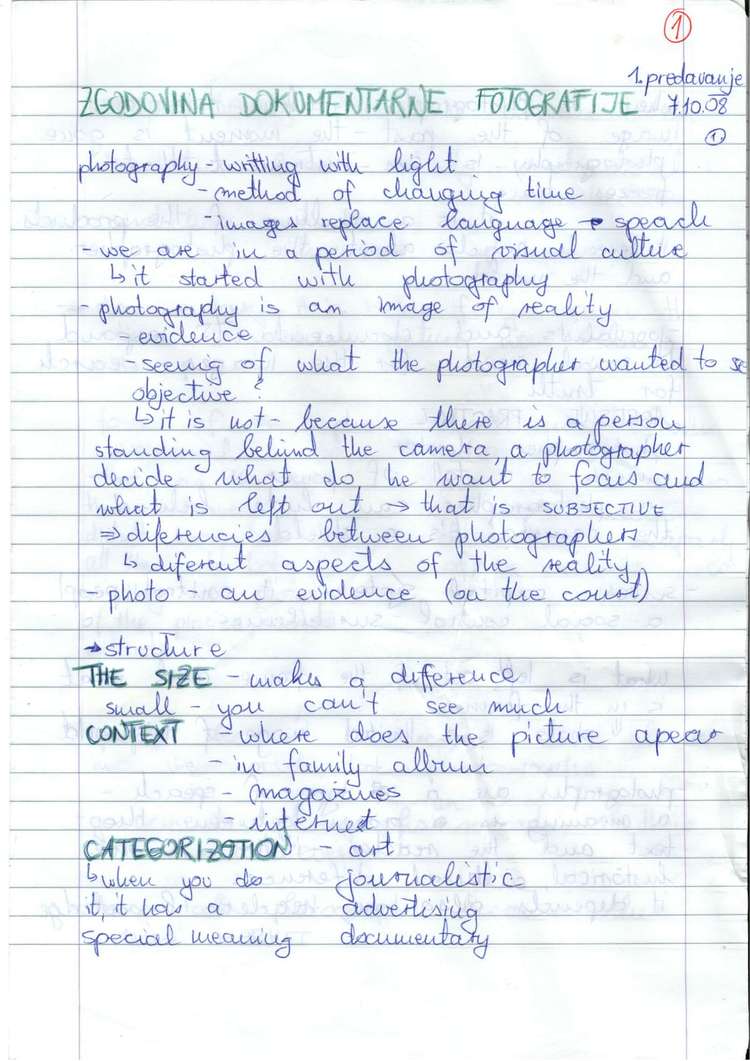 1
1. predavanje
ZGODOVINA DOKUMENTARNE FOTOGRAFIJE 7.10.08
1
photography - writting with light
- method of changing time
- images replace language → speach
- we are in a period of visual culture
↳ it started with photography
- photography is an image of reality
- evidence
- seeing of what the photographer wanted to se
objective?
↳ it is not - because there is a person
standing behind the camera, a photographer
decide what do he want to focus and
what is left out → that is SUBJECTIVE
⇒ diferencies between photographers
↳ diferent aspects of the reality
- photo - an evidence (on the court)
→ structure
THE SIZE - makes a difference
small - you can't see much
CONTEXT - where does the picture apear
- in family album
- magazines
- internet
CATEGORIZATION - art
↳ when you do journalistic
it, it has a advertising
special meaning documentary